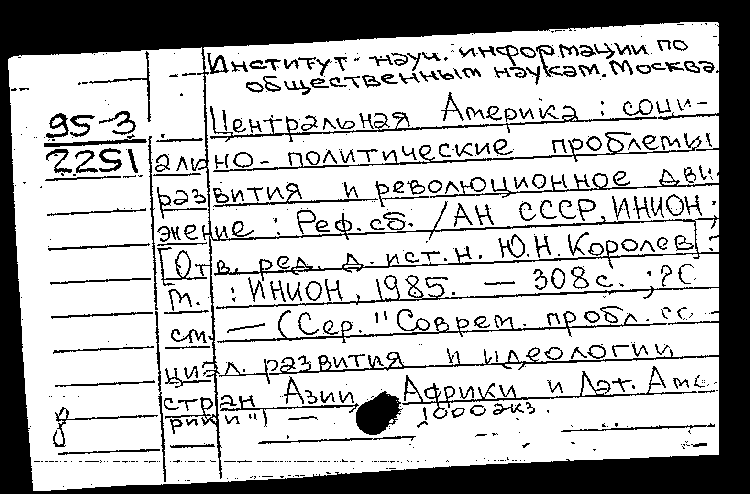 Институт науч. информации по
общественным наукам. Москва.
95-3
2251
Центральная Америка : соци-
ально-политические проблемы
развития и революционное дви-
жение : Реф. сб. / АН СССР, ИНИОН ;
[Отв. ред. д. ист. н. Ю.Н. Королев] . -
М. : ИНИОН, 1985. — 308 с. ; 20
см. — (Сер. "Соврем. пробл. со-
циал. развития и идеологии
стран Азии, Африки и Лат. Аме-
рики") — 1000 экз.